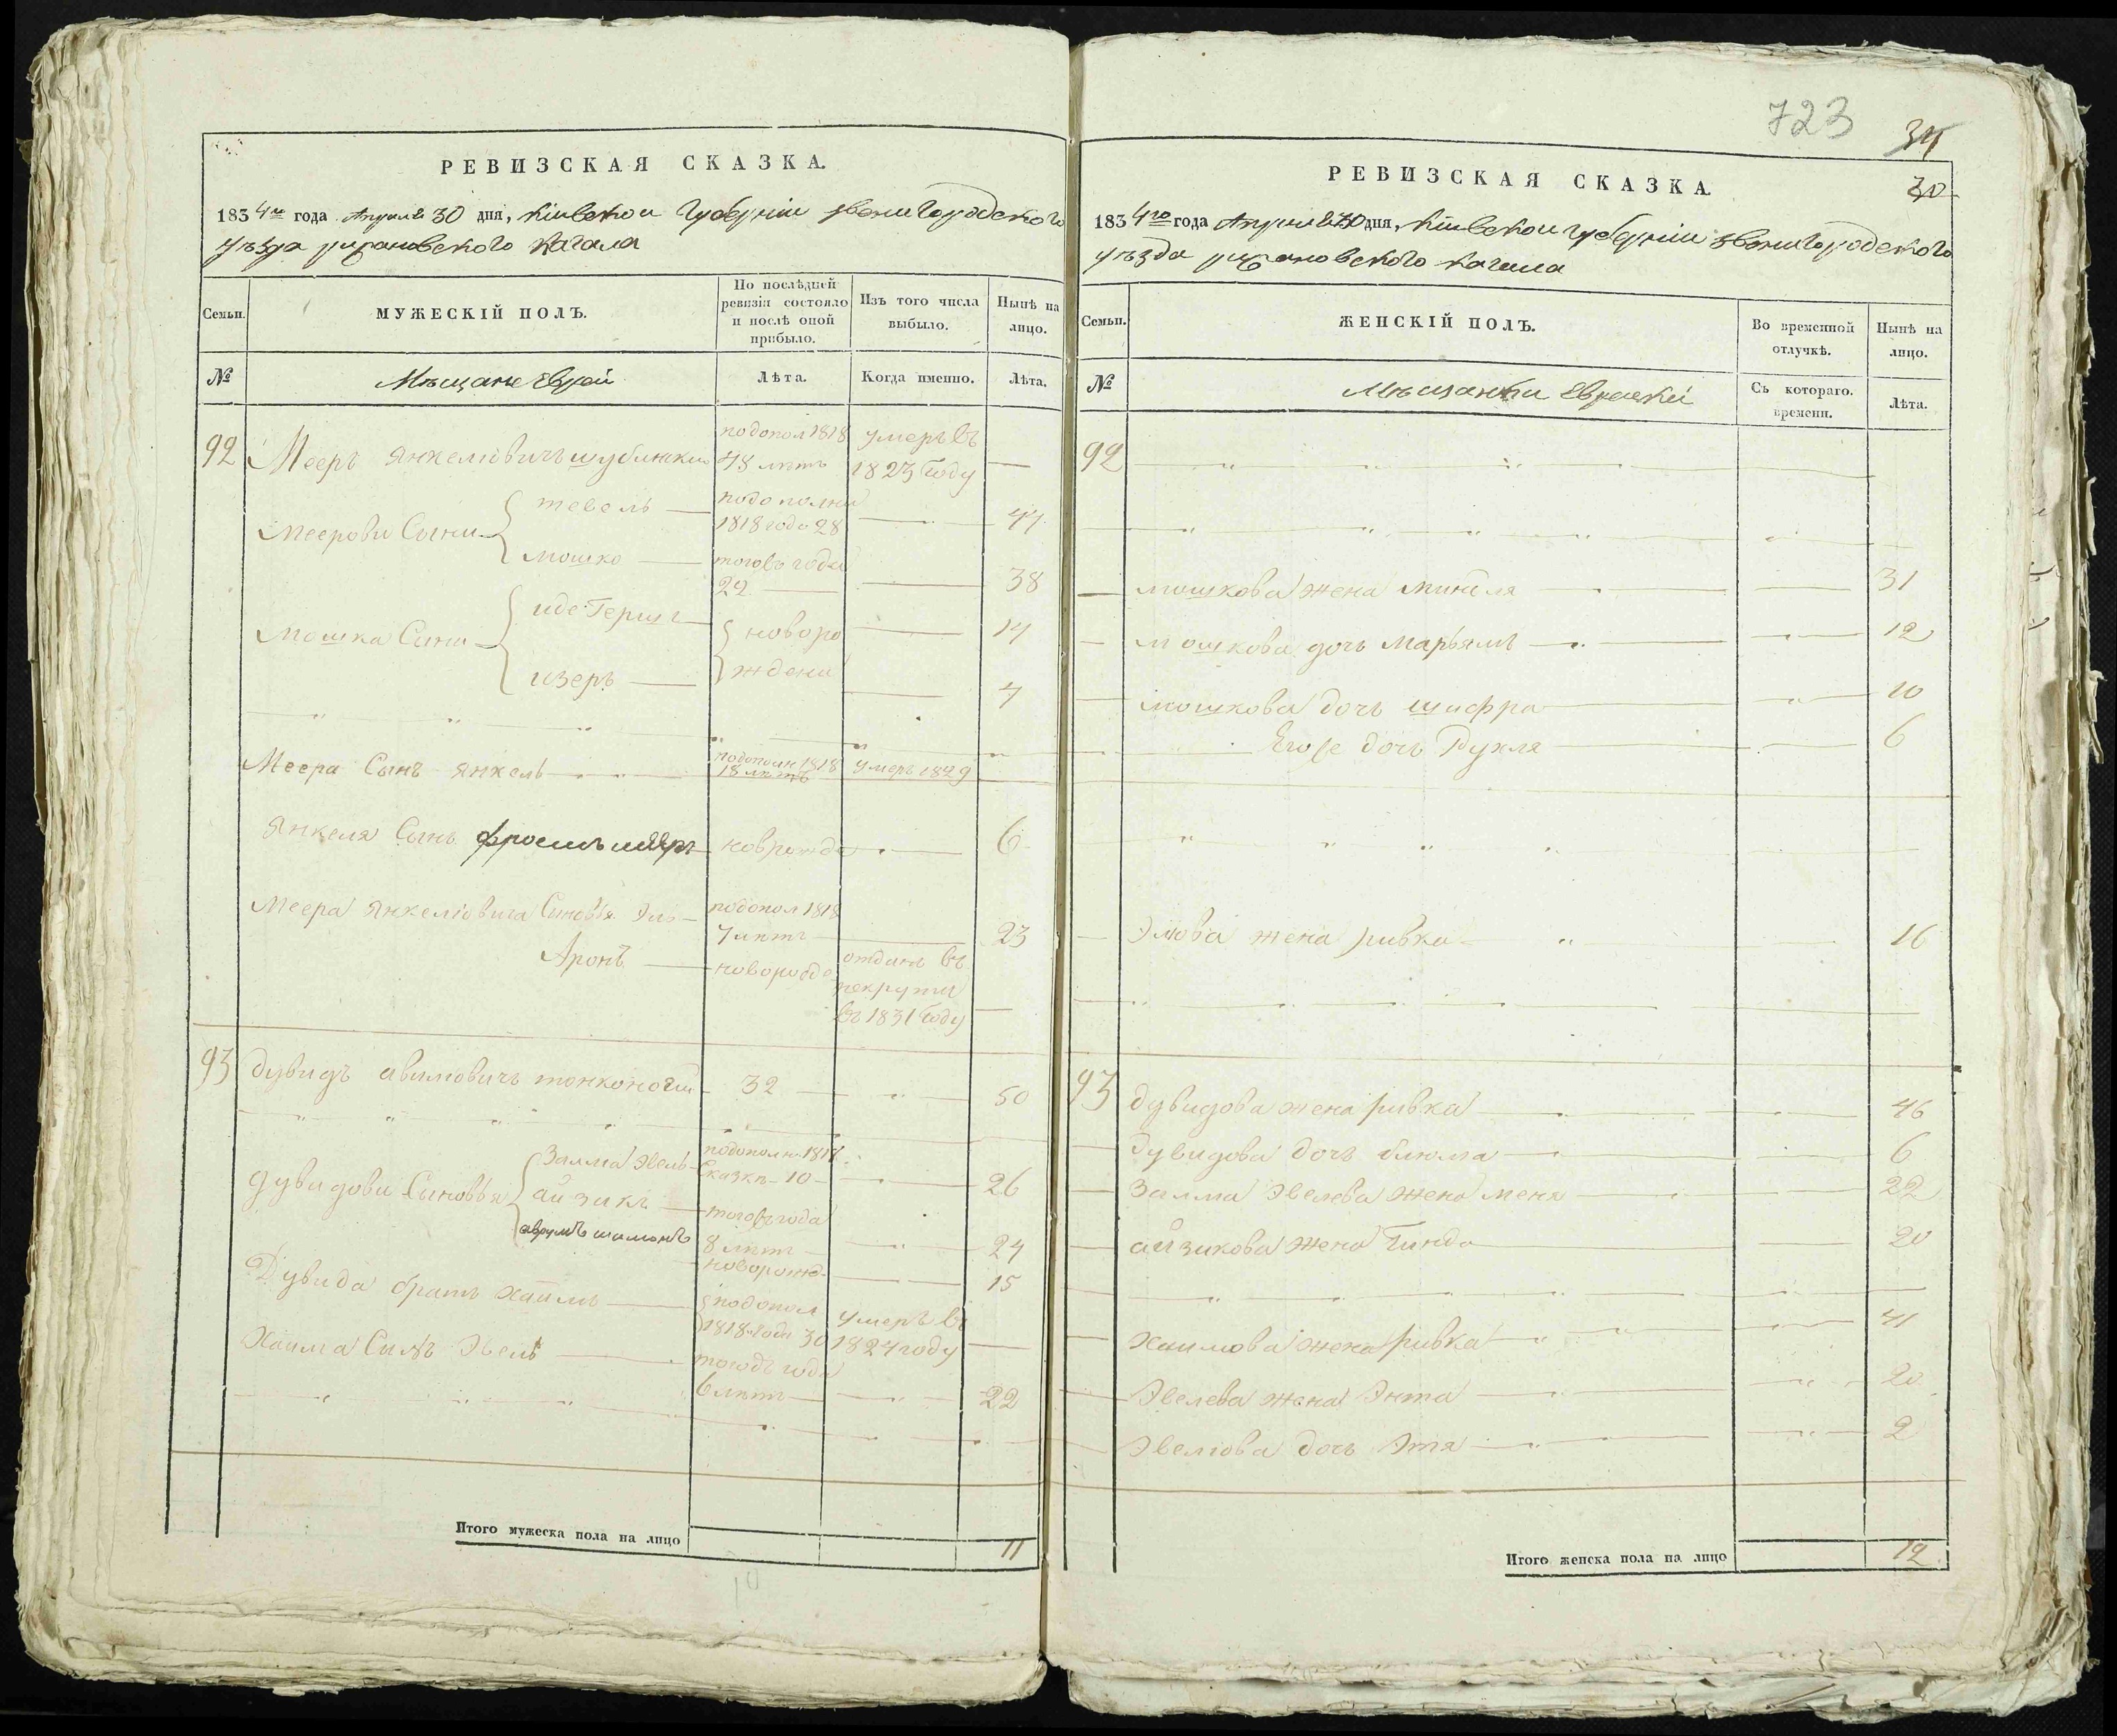 РЕВИЗСКАЯ СКАЗКА.
1834го года Апреля 30 дня, Кіевской Губерніи звенигородского
уѣзда рижановского Кагала
Семьи.
МУЖЕСКІЙ ПОЛЪ.
По послѣдней ревизіи состояло и послѣ оной прибыло.
Изъ того числа выбыло.
Нынѣ на лицо.
№
Мѣщане Евреи
Лѣта.
Когда именно.
Лѣта.
92 Мееръ Янкеліовичъ шублинский подопол 1818 48 лѣтъ умеръ въ 1823 Году
Меерови Сыни тевель подополни 1818 года 28 44
мошко тогожъ года 22 38
Мошка Сини иде Гершг новоро 14
изеръ ждени 4
Меера Сынъ Янкель подополн 1818 18 лѣтъ умеръ 1829
Янкеля Сынъ новрожде 6
Меера Янкеліовича Синовья Эль подопол 1818 7 лѣтъ 23
Аронъ новорожде отданъ въ рекруты въ 1831 Году
93 дувидъ авиміовичъ тонконогий 32 50
дувидови Сыновья Залма Эвель подополн 1818 Сказкѣ 10 26
айзикъ тогожъ года 8 лѣтъ 24
аврумъ шимонъ новорожд 15
Дувида братъ Хаимъ подопол 1818 года 30 умеръ въ 1824 году
Хаима Синъ Эвель тогожъ года 6 лѣтъ 22
Итого мужеска пола на лицо 11
723
34
30
РЕВИЗСКАЯ СКАЗКА.
1834го года Апреля 30 дня, Кіевской губерніи звенигородского
уѣзда рижановского кагала
Семьи.
ЖЕНСКІЙ ПОЛЪ.
Во временной отлучкѣ.
Нынѣ на лицо.
№
Мѣщанки Еврейки
Съ котораго времени.
Лѣта.
92
мошкова жена Минделя 31
мошкова дочъ Марьямъ 12
мошкова дочъ шифра 10
Егоже дочъ Рухля 6
Эліова жена ривка 16
93 дувидова жена ривка 46
Дувидова дочъ блюма 6
Залма Эвелева жена меня 22
айзикова жена Гинда 20
Хаимова жена ривка 41
Эвелева жена Энта 20
Эвеліова дочъ Этя 2
Итого женска пола на лицо 12